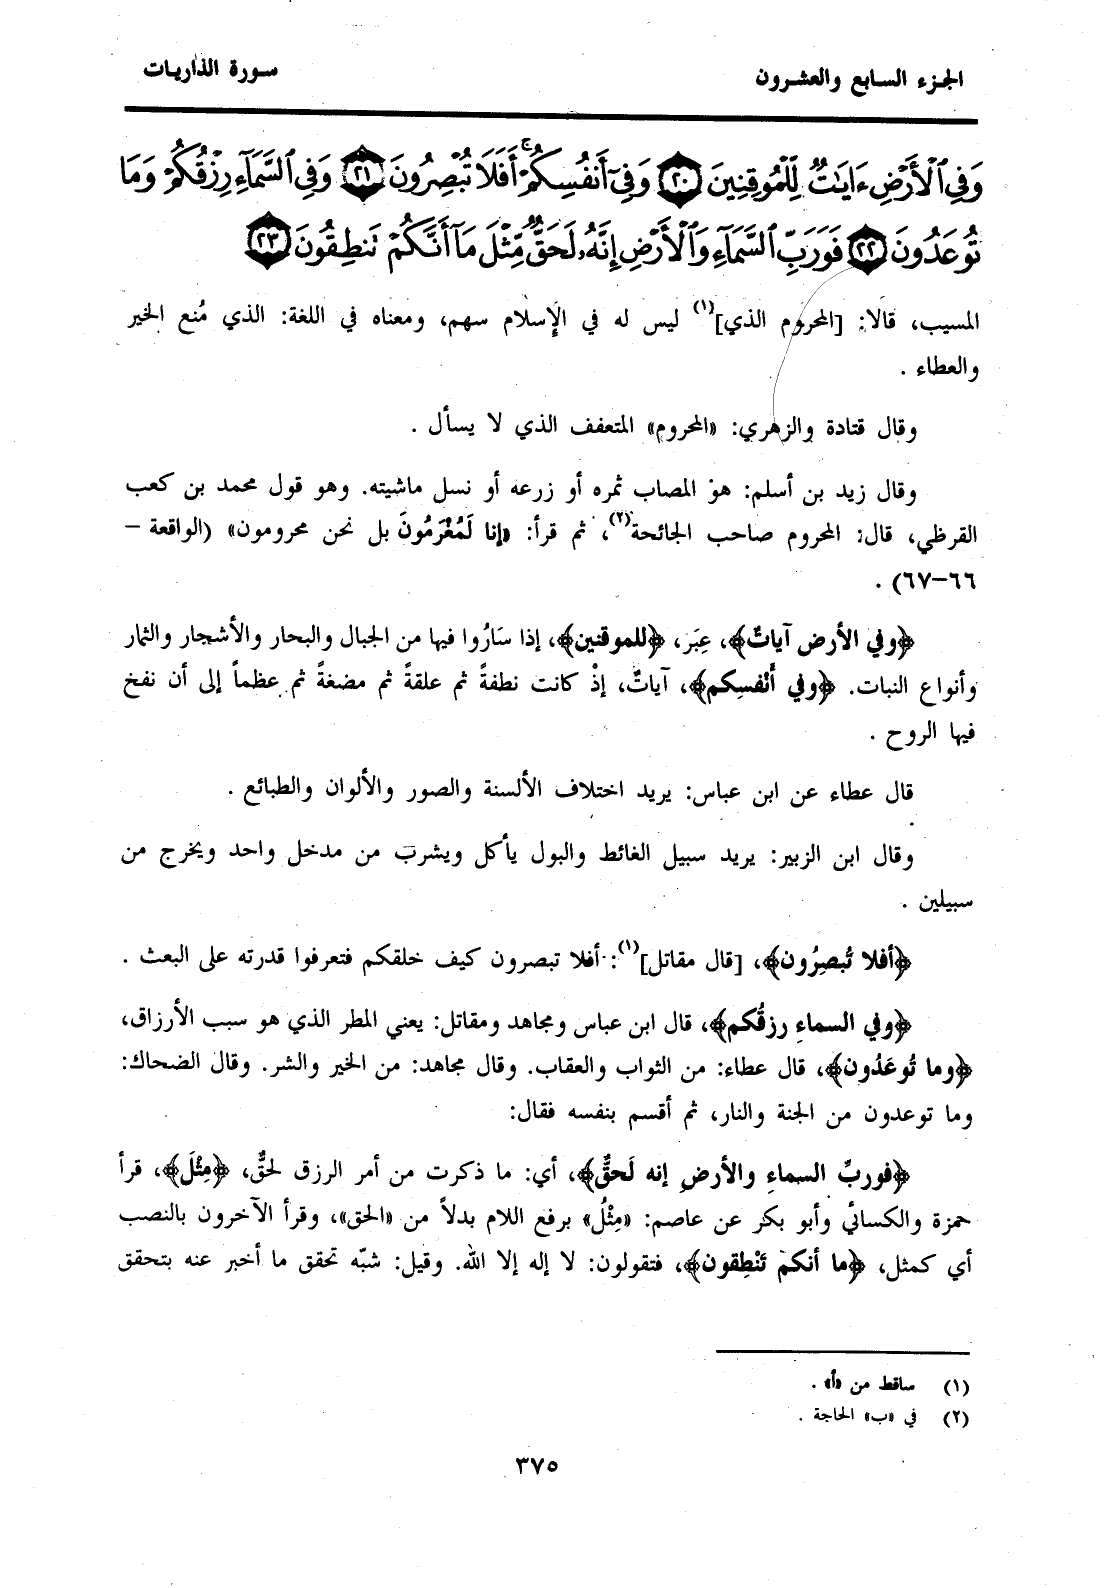 الجزء السابع والعشرون
سورة الذاريات
وَفِي ٱلْأَرْضِ ءَايَٰتٌ لِّلْمُوقِنِينَ ۝٢٠ وَفِىٓ أَنفُسِكُمْ ۚ أَفَلَا تُبْصِرُونَ ۝٢١ وَفِي ٱلسَّمَآءِ رِزْقُكُمْ وَمَا
تُوعَدُونَ ۝٢٢ فَوَرَبِّ ٱلسَّمَآءِ وَٱلْأَرْضِ إِنَّهُۥ لَحَقٌّ مِّثْلَ مَآ أَنَّكُمْ تَنطِقُونَ ۝٢٣
المسيب، قالا: [المحروم الذي](١) ليس له في الإسلام سهم، ومعناه في اللغة: الذي مُنع الخير
والعطاء .
وقال قتادة والزهري: «المحروم» المتعفف الذي لا يسأل .
وقال زيد بن أسلم: هو المصاب ثمره أو زرعه أو نسل ماشيته. وهو قول محمد بن كعب
القرظي، قال: المحروم صاحب الجائحة(٢)، ثم قرأ: «إنا لَمُغْرَمُونَ بل نحن محرومون» (الواقعة –
٦٦–٦٧) .
﴿وفي الأرض آياتٌ﴾، عِبَر، ﴿للموقنين﴾، إذا سَارُوا فيها من الجبال والبحار والأشجار والثمار
وأنواع النبات. ﴿وفي أَنْفسِكم﴾، آياتٌ، إذْ كانت نطفةً ثم علقةً ثم مضغةً ثم عظماً إلى أن نفخ
فيها الروح .
قال عطاء عن ابن عباس: يريد اختلاف الألسنة والصور والألوان والطبائع .
وقال ابن الزبير: يريد سبيل الغائط والبول يأكل ويشرب من مدخل واحد ويخرج من
سبيلين .
﴿أفلا تُبصِرُون﴾، [قال مقاتل](١): أفلا تبصرون كيف خلقكم فتعرفوا قدرته على البعث .
﴿وفي السماءِ رزقُكم﴾، قال ابن عباس ومجاهد ومقاتل: يعني المطر الذي هو سبب الأرزاق،
﴿وما تُوعَدُون﴾، قال عطاء: من الثواب والعقاب. وقال مجاهد: من الخير والشر. وقال الضحاك:
وما توعدون من الجنة والنار، ثم أقسم بنفسه فقال:
﴿فوربِّ السماءِ والأرضِ إنه لَحقٌّ﴾، أي: ما ذكرت من أمر الرزق لحقٌّ، ﴿مِثْلَ﴾، قرأ
حمزة والكسائي وأبو بكر عن عاصم: «مِثْلُ» برفع اللام بدلاً من «الحق»، وقرأ الآخرون بالنصب
أي كمثل، ﴿ما أنكم تَنْطِقون﴾، فتقولون: لا إله إلا الله. وقيل: شبّه تحقق ما أخبر عنه بتحقق
(١) ساقط من «أ» .
(٢) في «ب» الحاجة .
٣٧٥